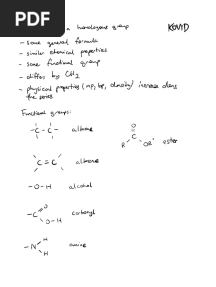 PDF
a homologous group
KOVID
- same general formula
- similar chemical properties
- same functional group
- differs by CH2
- physical properties (mp, bp, density) increase down
the series
Functional groups:
- C - C - alkane
O
C
R OR' ester
C = C alkene
- O - H alcohol
- C O
O - H carboxyl
- N H
H amine